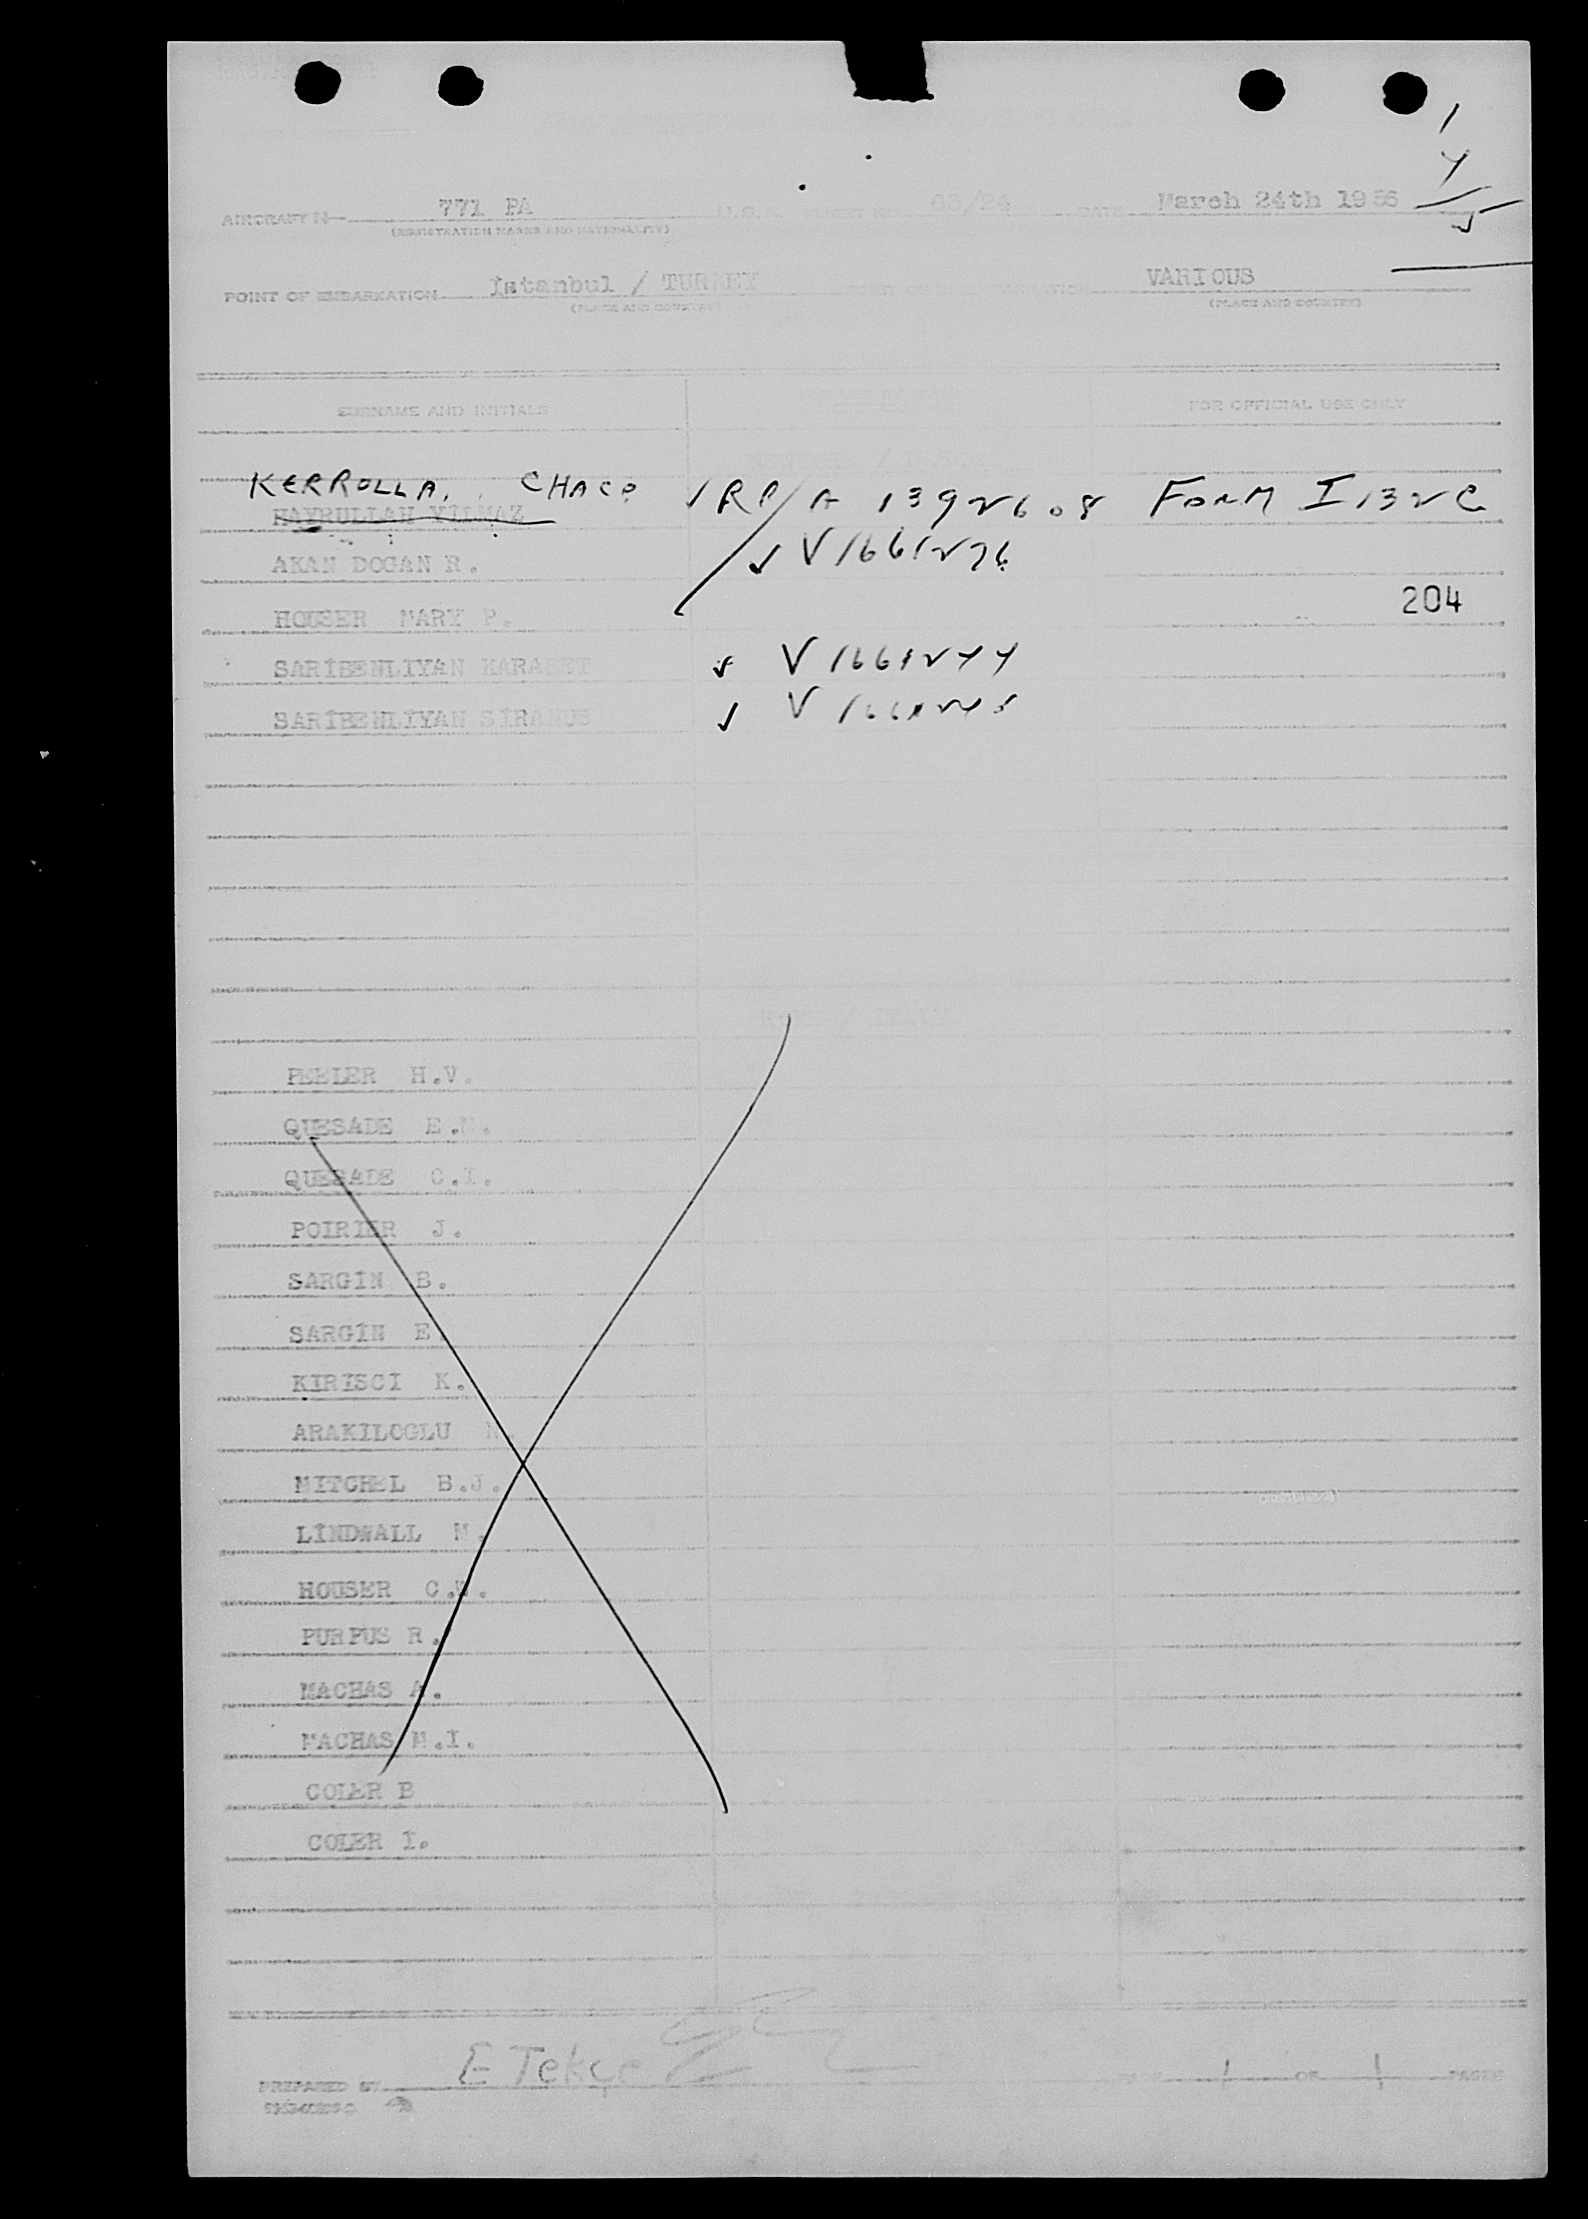 1
4
5
AIRCRAFT N 771 PA 63/24 DATE March 24th 1956
(REGISTRATION MARKS AND NATIONALITY)
POINT OF EMBARKATION İstanbul / TURKEY VARIOUS
(PLACE AND COUNTRY) (PLACE AND COUNTRY)
SURNAME AND INITIALS FOR OFFICIAL USE ONLY
KERROLLA, CHACO FORM I 132C
HAYRULLAH YILMAZ
AKAN DOGAN R. V1661276
HOUSER MARY P. 204
SARİBENLİYAN KARABET V1661244
SARİBENLİYAN SİRANUS
PEELER H.V.
QUESADE E.
QUESADE C.I.
POIRIER J.
SARGİN B.
SARGİN E.
KIRISCI K.
ARAKİLOGLU
MITCHEL B.J.
LİNDWALL M.
HOUSER C.
PURPUS R.
MACHAS A.
MACHAS M.I.
COLER B
COLER I.
PREPARED BY E Tekçe 1 OF 1 PAGES